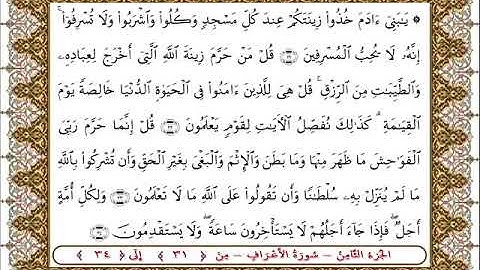 ۞ يَـٰبَنِىٓ ءَادَمَ خُذُوا۟ زِينَتَكُمْ عِندَ كُلِّ مَسْجِدٍ وَكُلُوا۟ وَٱشْرَبُوا۟ وَلَا تُسْرِفُوٓا۟ ۚ
إِنَّهُۥ لَا يُحِبُّ ٱلْمُسْرِفِينَ ﴿٣١﴾ قُلْ مَنْ حَرَّمَ زِينَةَ ٱللَّهِ ٱلَّتِىٓ أَخْرَجَ لِعِبَادِهِۦ
وَٱلطَّيِّبَـٰتِ مِنَ ٱلرِّزْقِ ۚ قُلْ هِىَ لِلَّذِينَ ءَامَنُوا۟ فِى ٱلْحَيَوٰةِ ٱلدُّنْيَا خَالِصَةً يَوْمَ
ٱلْقِيَـٰمَةِ ۗ كَذَٰلِكَ نُفَصِّلُ ٱلْـَٔايَـٰتِ لِقَوْمٍ يَعْلَمُونَ ﴿٣٢﴾ قُلْ إِنَّمَا حَرَّمَ رَبِّىَ
ٱلْفَوَٰحِشَ مَا ظَهَرَ مِنْهَا وَمَا بَطَنَ وَٱلْإِثْمَ وَٱلْبَغْىَ بِغَيْرِ ٱلْحَقِّ وَأَن تُشْرِكُوا۟ بِٱللَّهِ
مَا لَمْ يُنَزِّلْ بِهِۦ سُلْطَـٰنًا وَأَن تَقُولُوا۟ عَلَى ٱللَّهِ مَا لَا تَعْلَمُونَ ﴿٣٣﴾ وَلِكُلِّ أُمَّةٍ
أَجَلٌ ۖ فَإِذَا جَآءَ أَجَلُهُمْ لَا يَسْتَأْخِرُونَ سَاعَةً ۖ وَلَا يَسْتَقْدِمُونَ ﴿٣٤﴾
الجزء الثامن - سورة الأعراف - من ﴿ ٣١ ﴾ إلى ﴿ ٣٤ ﴾